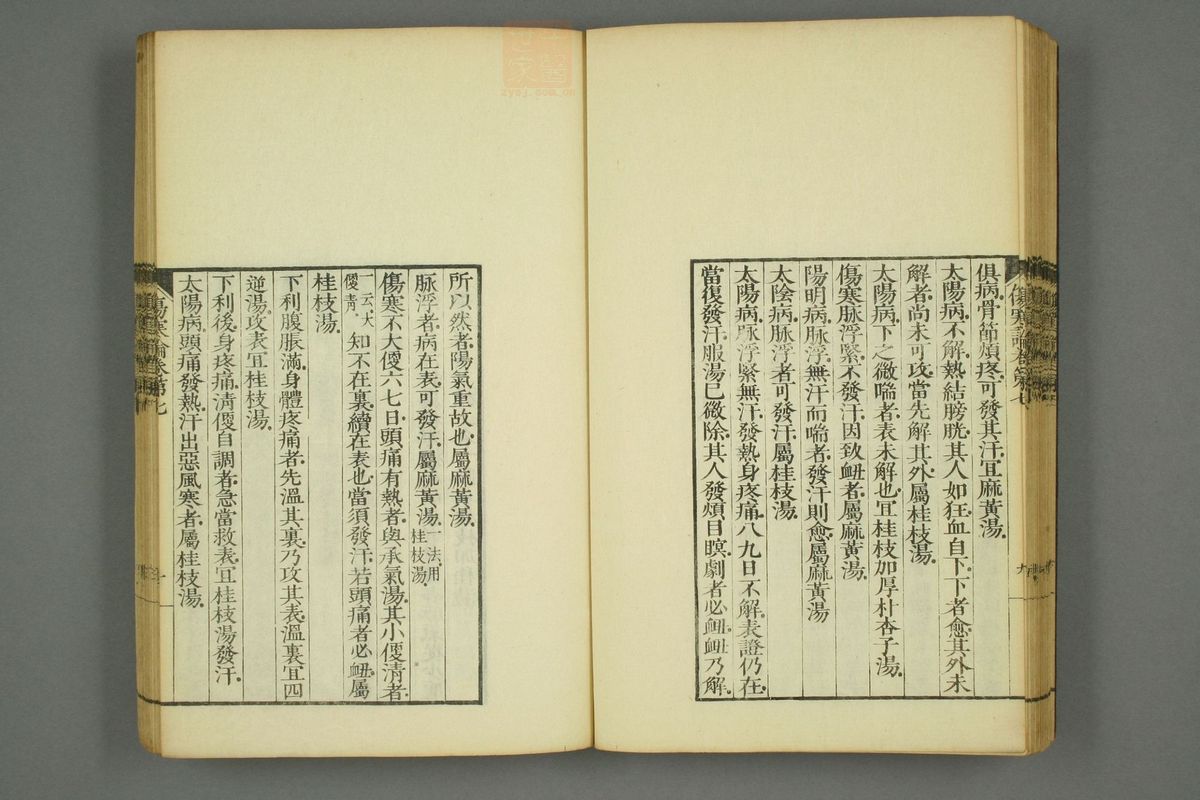 俱病骨節煩疼可發其汗宜麻黃湯
太陽病不解熱結膀胱其人如狂血自下下者愈其外未
解者尚未可攻當先解其外屬桂枝湯
太陽病下之微喘者表未解也宜桂枝加厚朴杏子湯
傷寒脉浮緊不發汗因致衄者屬麻黃湯
陽明病脉浮無汗而喘者發汗則愈屬麻黃湯
太陰病脉浮者可發汗屬桂枝湯
太陽病脉浮緊無汗發熱身疼痛八九日不解表證仍在
當復發汗服湯已微除其人發煩目瞑劇者必衄衄乃解
所以然者陽氣重故也屬麻黃湯
脉浮者病在表可發汗屬麻黃湯一法用桂枝湯
傷寒不大便六七日頭痛有熱者與承氣湯其小便清者
一云大便青知不在裏續在表也當須發汗若頭痛者必衄屬
桂枝湯
下利腹脹滿身體疼痛者先溫其裏乃攻其表溫裏宜四
逆湯攻表宜桂枝湯
下利後身疼痛清便自調者急當救表宜桂枝湯發汗
太陽病頭痛發熱汗出惡風寒者屬桂枝湯
傷寒論卷第七
傷寒論卷第七
zysj.com.cn